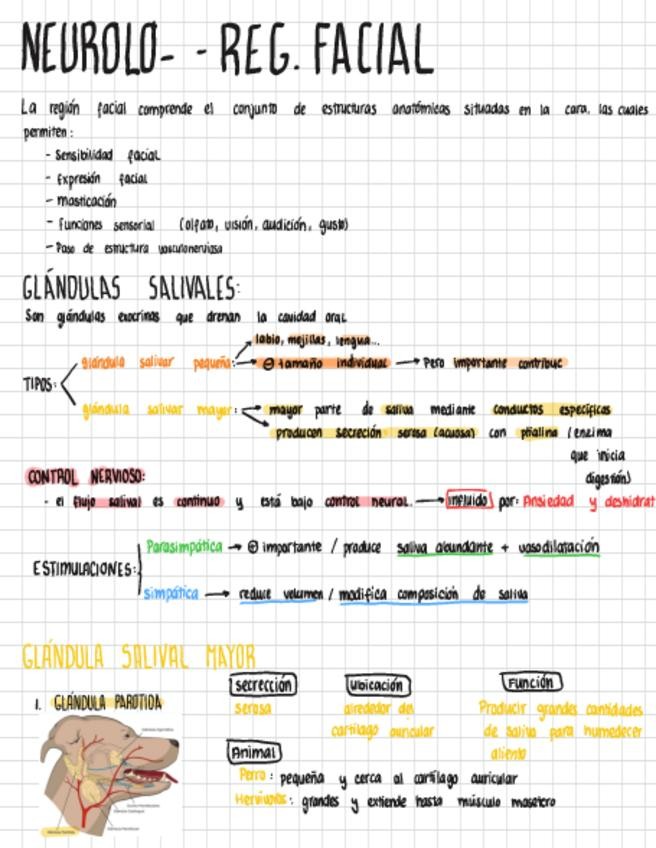 NEUROLO- - REG. FACIAL
La región facial comprende el conjunto de estructuras anatómicas situadas en la cara, las cuales
permiten:
- Sensibilidad facial
- Expresión facial
- masticación
- Funciones sensorial (olfato, visión, audición, gusto)
- Paso de estructura vasculonerviosa
GLÁNDULAS SALIVALES:
Son glándulas exocrinas que drenan la cavidad oral
TIPOS:
glándula salivar pequeña:
→ labio, mejillas, lengua...
→ ⊖ tamaño individual → Pero importante contribuc
glándula salivar mayor:
→ mayor parte de saliva mediante conductos específicos
→ producen secreción serosa (acuosa) con ptialina (enzima
que inicia
digestión)
CONTROL NERVIOSO:
- el flujo salival es continuo y está bajo control neural. → influido por: Ansiedad y deshidrat
ESTIMULACIONES:
Parasimpática → ⊕ importante / produce saliva abundante + vasodilatación
simpática → reduce volumen / modifica composición de saliva
GLÁNDULA SALIVAL MAYOR
1. GLÁNDULA PAROTIDA
secrección
serosa
Ubicación
alrededor del
cartílago auricular
Función
Producir grandes cantidades
de saliva para humedecer
aliento
Animal
Perro: pequeña y cerca al cartílago auricular
Hervivoros: grandes y extiende hasta músculo masetero